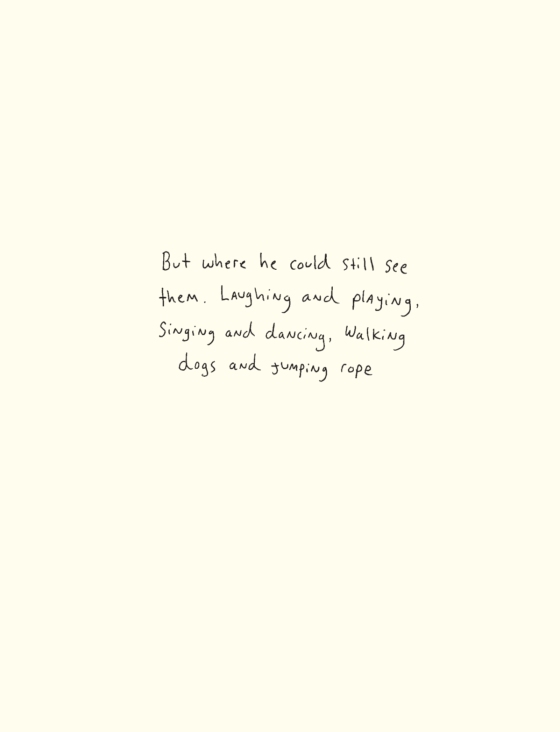 But where he could still see
them. Laughing and playing,
Singing and dancing, Walking
dogs and jumping rope